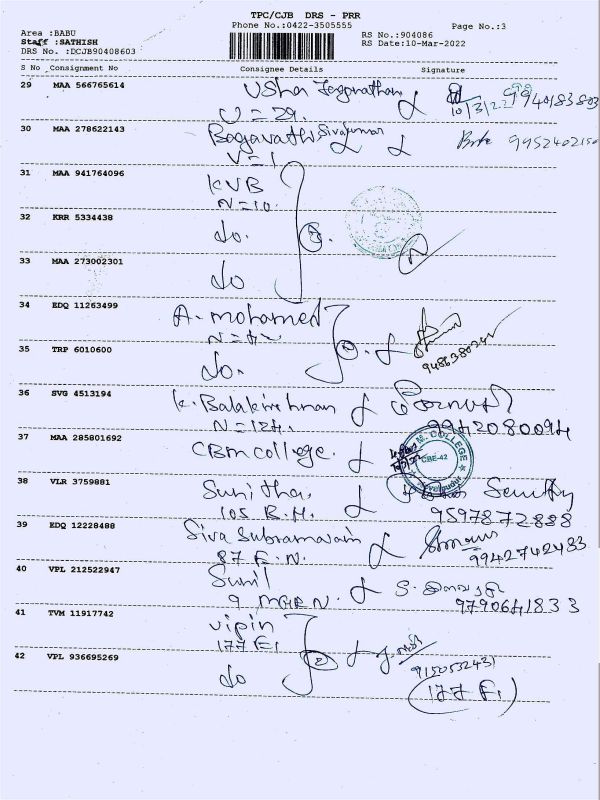 TPC/CJB DRS - PRR
Phone No.:0422-3505555
Page No.:3
Area :BABU
RS No.:904086
Staff :SATHISH
RS Date:10-Mar-2022
DRS No. :DCJB90408603
S No Consignment No Consignee Details Signature
29 MAA 566765614 Usha Jagganathan
10/3/22 9940183803
U=29.
30 MAA 278622143 Bagavathi Sivakumar
9952402150
V=1
31 MAA 941764096 KVB
N=10.
32 KRR 5334438 do.
2.
33 MAA 273002301 do
34 EDQ 11263499 A. mohamed
9486380241
35 TRP 6010600 do.
36 SVG 4513194 K. Balakrishnan
N=124. 9942080094
37 MAA 285801692 CBM college.
M. COLLEGE
CBE-42
38 VLR 3759881 Sunitha,
105 B.H. 9597872888
39 EDQ 12228488 Siva Subramaniam
87 E.N. 9942742483
40 VPL 212522947 Sunil
9 MGR N. 9790641833
41 TVM 11917742 vipin
177 E1
9150532431
42 VPL 936695269 do
177 E1